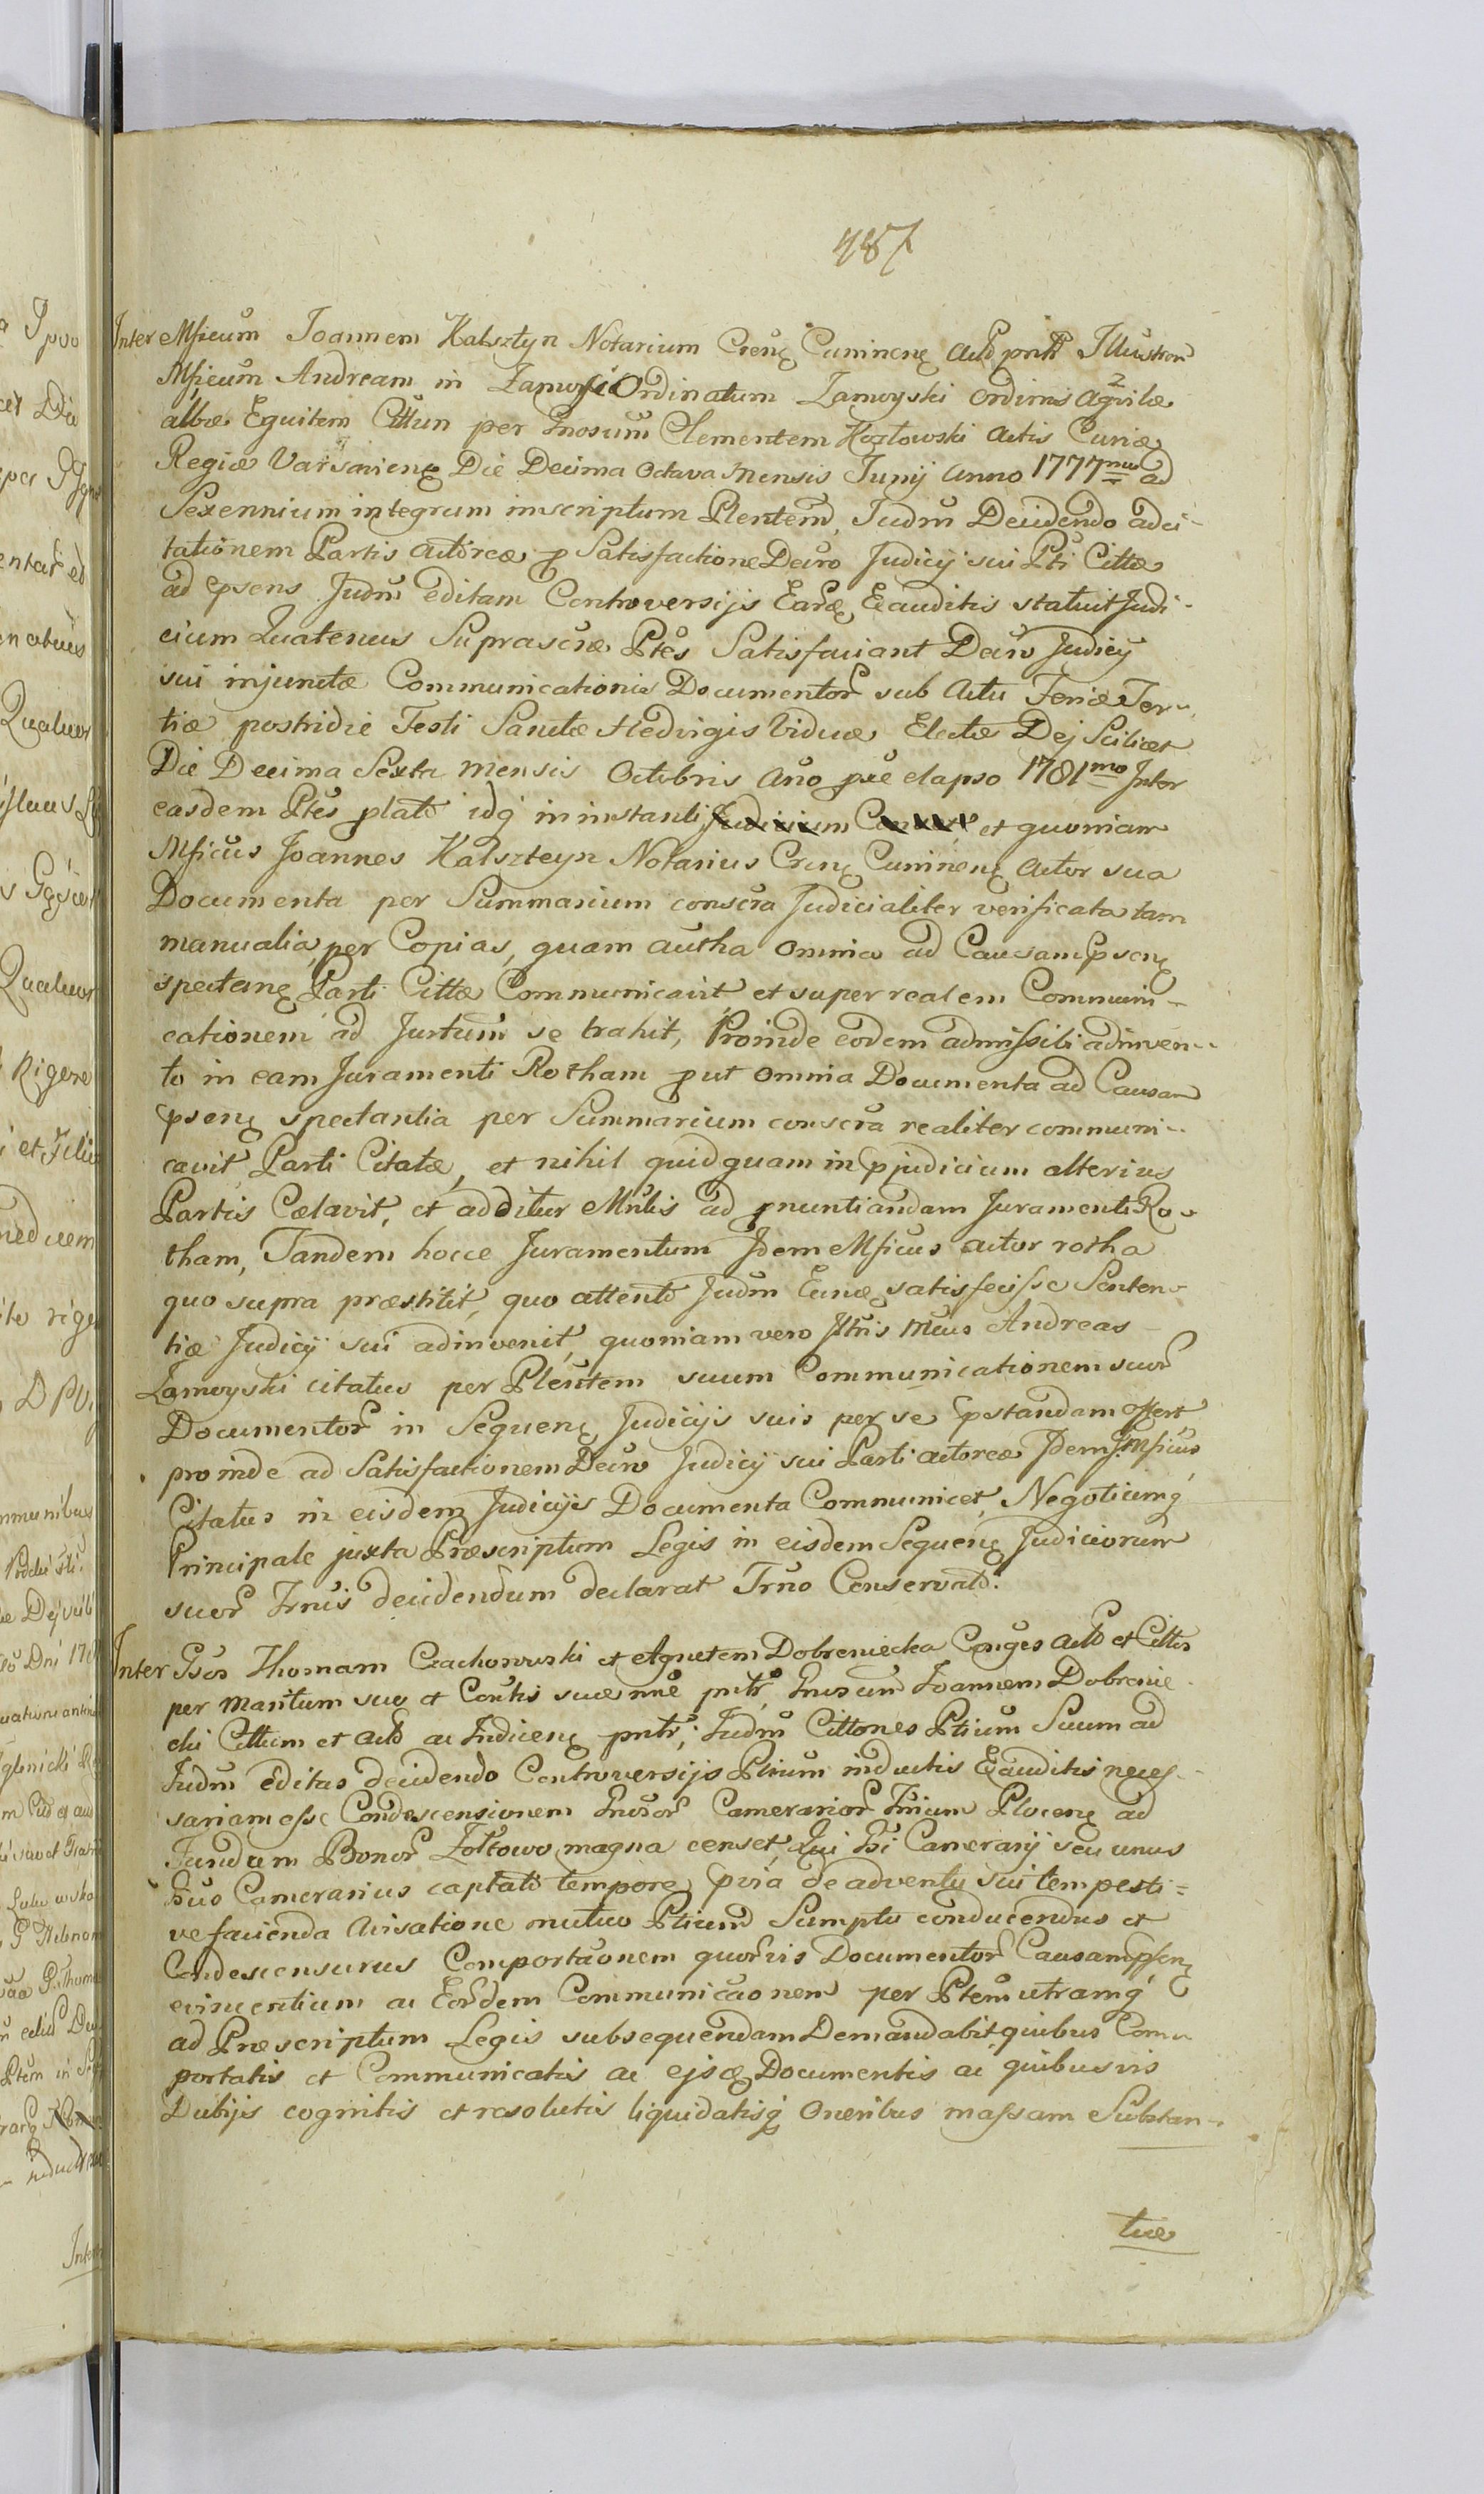 487
Inter Mficum Joannem Kalsztyn Notarium Crens Cuninens Actorem pntt Illustrem
Mficum Andream in Zamość Ordinatum Zamoyski Ordinis Aquilæ
albæ Equitem Cittum per Gnosum Clementem Kozłowski Actis Curiæ
Regiæ Varsaviens Die Decima Octava Mensis Junij Anno 1777mo ad
Sexennium integrum inscriptum Plentem, Judm Decidendo adci-
tationem Partis Actoreæ p Satisfactione Decro Judicij sui Pti Cittæ
ad psens Judm editam Controversijs Earũ Exauditis statuit Judi-
cium Quatenus Suprascræ Ptes Satisfaciant Decro Judicij
sui injunctæ Communicationis Documentor sub Actu Feriæ Ter-
tiæ postridie Festi Sanctæ Hedvigis Viduæ Electæ Dej Scilicet
Die Decima Sexta Mensis Octobris Año præ elapso 1781mo Inter
easdem Ptes plato idq in instanti Judicium et quoniam
Mficus Joannes Kalszteyn Notarius Crens Cuninens Actor sua
Documenta per Summarium conscra Judicialiter verificata tam
manualia, per Copias, quam autha omnia ad Causam psens
spectans Parti Cittæ Communicavit et super realem Communi-
cationem ad Jurtum se trahit, Proinde eodem admissibili adinven-
to in eam Juramenti Rotham put omnia Documenta ad Causam
psens spectantia per Summarium conscra realiter communi-
cavit Parti Citatæ, et nihil quidquam in pjudicium alterius
Partis Cælavit, et additur Mnlis ad pnuntiandam Juramenti Ro-
tham, Tandem hocce Juramentum Idem Mficus actor rotha
quo supra præstitit, quo attento Judm Eund satisfecisse Senten-
tiæ Judicij sui adinvenit, quoniam vero Jltris Mcus Andreas
Zamoyski citatus per Plentem suum Communicationem suor
Documentor in Sequens Judicijs suis per se pstandam offert
proinde ad Satisfactionem Decro Judicij sui Parti actoreæ Idem J. Mficus
Citatus in eisdem Judicijs Documenta Communicet, Negotiumq
Principale juxta Præscriptum Legis in eisdem Sequens Judiciorum
suor Trnis decidendum declarat Trno Conservato.
Inter Gsos Thomam Czachorowski et Agnetem Dobrzeniecka Conges Actores et Cittos
per Maritum suo et Contis suæ nne pntr, Gnosum Joannem Dobrzenie-
cki Cittum et Actorem ac Indicens pntr; Judm Cittones Ptium Suum ad
Judm editas decidendo Controversijs Ptium inductis Exauditis neces-
sariam esse Condescensionem Gnosor Camerarior Trium Plocens ad
Fundum Bonor Zołtowo magna censet, Qui Hi Camerarij seu unus
Camerarius captato tempore pvia de adventu sui tempesti-
ve facienda Avisatione mutuo Ptium Sumptu conducendus et
Condescensurus Comportãonem quorvis Documentor Causam psens
evincentium ac Eordem Communicãonem per Ptem utramq
ad Præscriptum Legis subsequendam Demandabit, quibus Com-
portatis et Communicatis ac Documentis ac quibusvis
Dubijs cognitis et resolutis liquidatisq Oneribus massam Substan-
tiæ